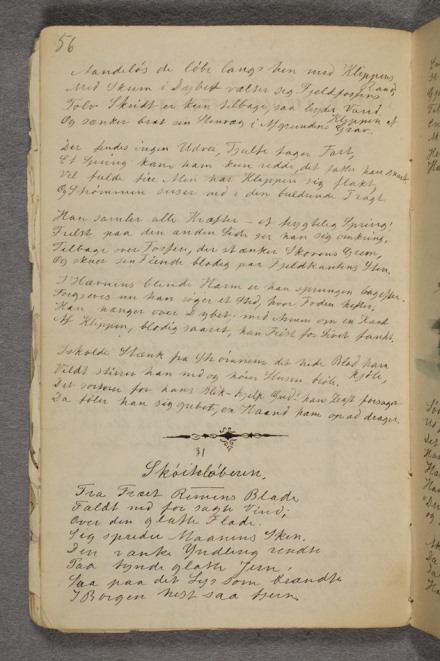 56
Aandeløs de løbe langs hen med Klippens Rand,
Med Skum i Dybet vælter sig Fjeldfossens
Tolv Skridt er kun tilbage, saa lyder Vand,
Og sænker brat sin i Afgrundens Grav.
Der findes ingen Udvei, tager Fart,
Et Spring kan ham kun redde, det fatter han snart
Vel fulde Men har Klippen sig flakt,
Og Strømmen suser ned i den buldrende Tragt.
Han samler alle Kræfter – et frygtelig Spring!
Frelst paa den anden Side ser han sig omkring,
Tilbage over Fossen, der stænker Skovens Green,
Og skuer sin Fiende blodig paa Fjeldkantens Steen.
I Hævnens blinde Harm er han sprungen bagefter.
Forgjeves nu han søger et Sted, hvor Foden hefter,
Han hænger over Dybet med Armen om en Rand
Af Klippen, blodig saaret, han Frist for Livet fandt.
Iskolde Stænk fra Strømmen det hede Blod ham kjøle,
Vildt stirrer han ned og høier Hulen
Det sortner for hans Blik – hjelp Gud! hans Kraft forsager
Da føler han sig grebet, en Haand ham op ad drager.
31
Skøiteløberen.
Fra Træet Rimens Blade
Faldt ned for sagte Vind;
Over den glatte Flade
Sig spreder Maanens Skin.
Den ranke Yndling rendte
Paa tynde glatte Jern;
Saa paa det Lys som brændte
I Borgen hist saa fjern.